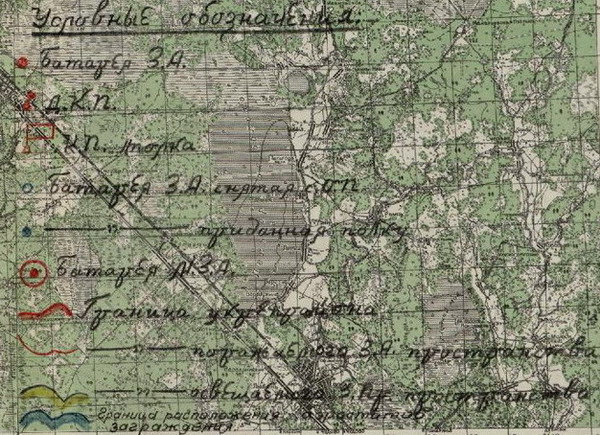 Условные обозначения.
Батарея З.А.
Д.К.П.
К.П. Мполка
Батарея З.А. снятая с ОП
—"— приданная полку
Батарея МЗА.
Граница укрепрайона
—"— поражаемого З.А. пространства
—"— освещаемого З.Пр. пространства
Граница расположения аэростатов
заграждения.